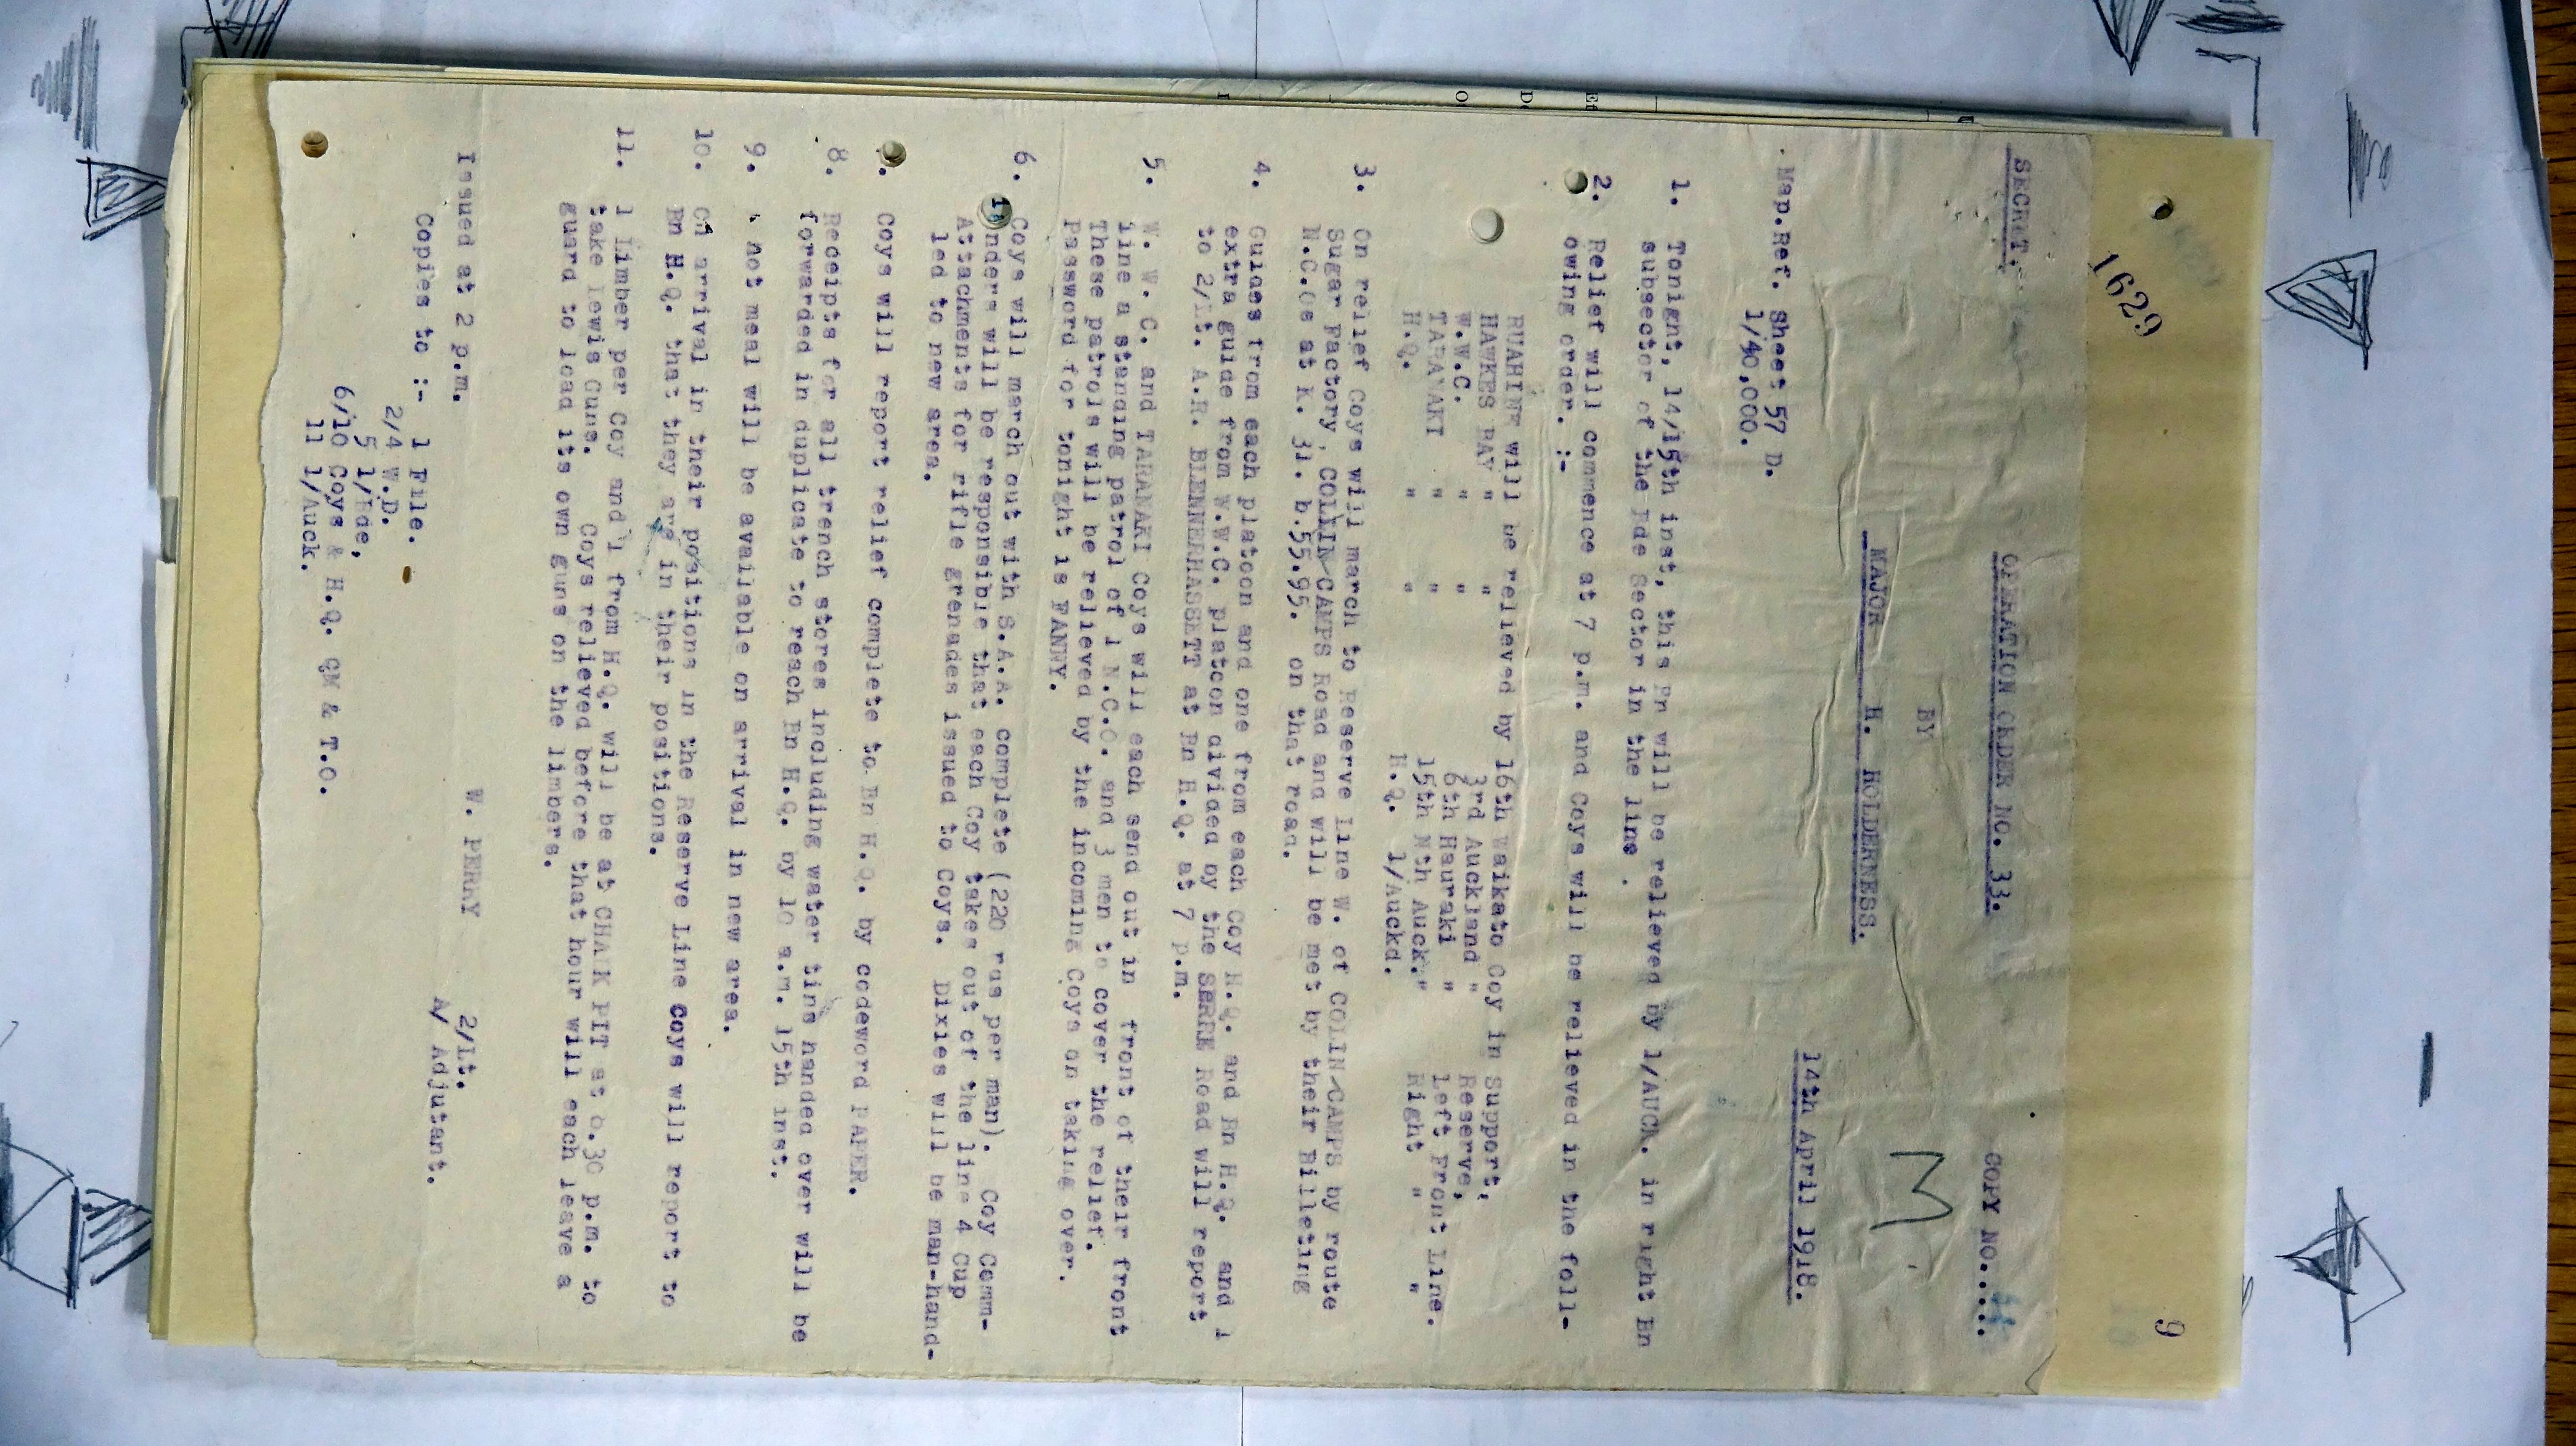 1629
9
SECRET.
OPERATION ORDER NO. 33.
COPY NO.....
BY
MAJOR H. HOLDERNESS.
M
14th April 1918.
Map.Ref. Sheet 57 D.
1/40,000.
1. Tonight, 14/15th inst, this Bn will be relieved by 1/AUCK. in right Bn
subsector of the Bde Sector in the line .
2. Relief will commence at 7 p.m. and Coys will be relieved in the foll-
owing order. :-
RUAHINE will be relieved by 16th Waikato Coy in Support,
HAWKES BAY " " 3rd Auckland " Reserve,
W.W.C. " " 6th Hauraki " Left Front Line.
TARANAKI " " 15th Nth Auck." Right " "
H.Q. " " H.Q. 1/Auckd.
3. On relief Coys will march to Reserve Line W. of COLIN-CAMPS by route
Sugar Factory, COLLIN-CAMPS Road and will be met by their Billeting
N.C.Os at K. 31. b.55.95. on that road.
4. Guides from each platoon and one from each Coy H.Q. and Bn H.Q. and 1
extra guide from W.W.C. platoon divided by the SERRE Road will report
to 2/Lt. A.R. BLENNERHASSETT at Bn H.Q. at 7 p.m.
5. W. W. C. and TARANAKI Coys will each send out in front of their front
line a standing patrol of 1 N.C.O. and 3 men to cover the relief.
These patrols will be relieved by the incoming Coys on taking over.
Password for tonight is FANNY.
6. Coys will march out with S.A.A. complete (220 rds per man). Coy Comm-
anders will be responsible that each Coy takes out of the line 4 Cup
Attachments for rifle grenades issued to Coys. Dixies will be man-hand-
led to new area.
. Coys will report relief complete to Bn H.Q. by codeword PAPER.
8. Receipts for all trench stores including water tins handed over will be
forwarded in duplicate to reach Bn H.Q. by 10 a.m. 15th inst.
9. not meal will be available on arrival in new area.
10. On arrival in their positions in the Reserve Line Coys will report to
Bn H.Q. that they are in their positions.
11. 1 limber per Coy and 1 from H.Q. will be at CHALK PIT at 6.30 p.m. to
take Lewis Guns. Coys relieved before that hour will each leave a
guard to load its own guns on the limbers.
Issued at 2 p.m.
W. PERRY 2/Lt.
A/ Adjutant.
Copies to :- 1 File.
2/4 W.D.
5 1/Bde,
6/10 Coys & H.Q. QM & T.O.
11 1/Auck.